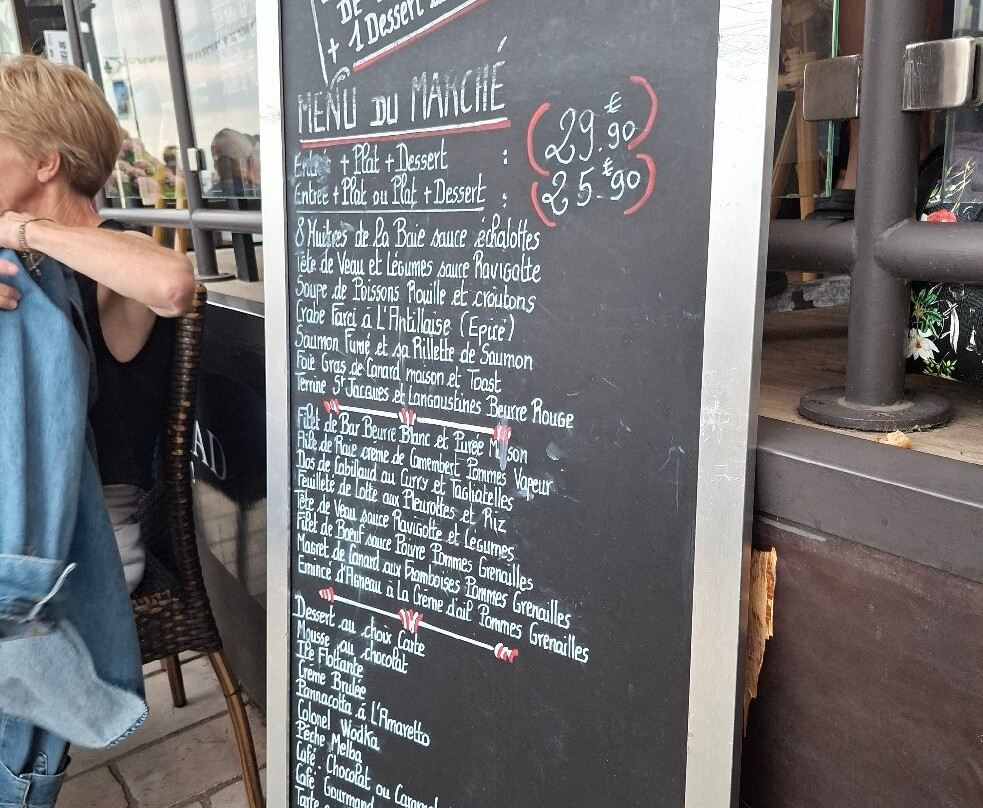 DE
+ 1 Dessert
MENU DU MARCHÉ
Entrée + Plat + Dessert : (29.€90)
Entrée + Plat ou Plat + Dessert : (25.€90)
8 Huîtres de la Baie sauce échalottes
Tête de Veau et Légumes sauce Ravigotte
Soupe de Poissons Rouille et croûtons
Crabe Farci à L'Antillaise (Epicé)
Saumon Fumé et sa Rillette de Saumon
Foie Gras de Canard maison et Toast
Terrine St Jacques et Langoustines Beurre Rouge
Filet de Bar Beurre Blanc et Purée Maison
Aile de Raie crème de Camembert Pommes Vapeur
Dos de Cabillaud au Curry et Tagliatelles
Feuilleté de Lotte aux Pleurottes et Riz
Tête de Veau sauce Ravigotte et Légumes
Filet de Boeuf sauce Poivre Pommes Grenailles
Magret de Canard aux Framboises Pommes Grenailles
Emincé d'Agneau à La Crème d'ail Pommes Grenailles
Dessert au choix Carte
Mousse au chocolat
Ile Flottante
Crème Brulée
Pannacotta à L'Amaretto
Colonel Wodka
Pêche Melba
Café - Chocolat ou Caramel
Café Gourmand
Tarte
AD